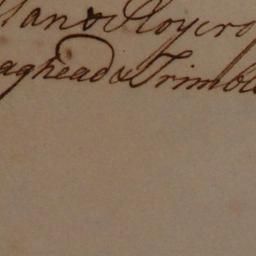 lan & Moyers
aghead & Trimble